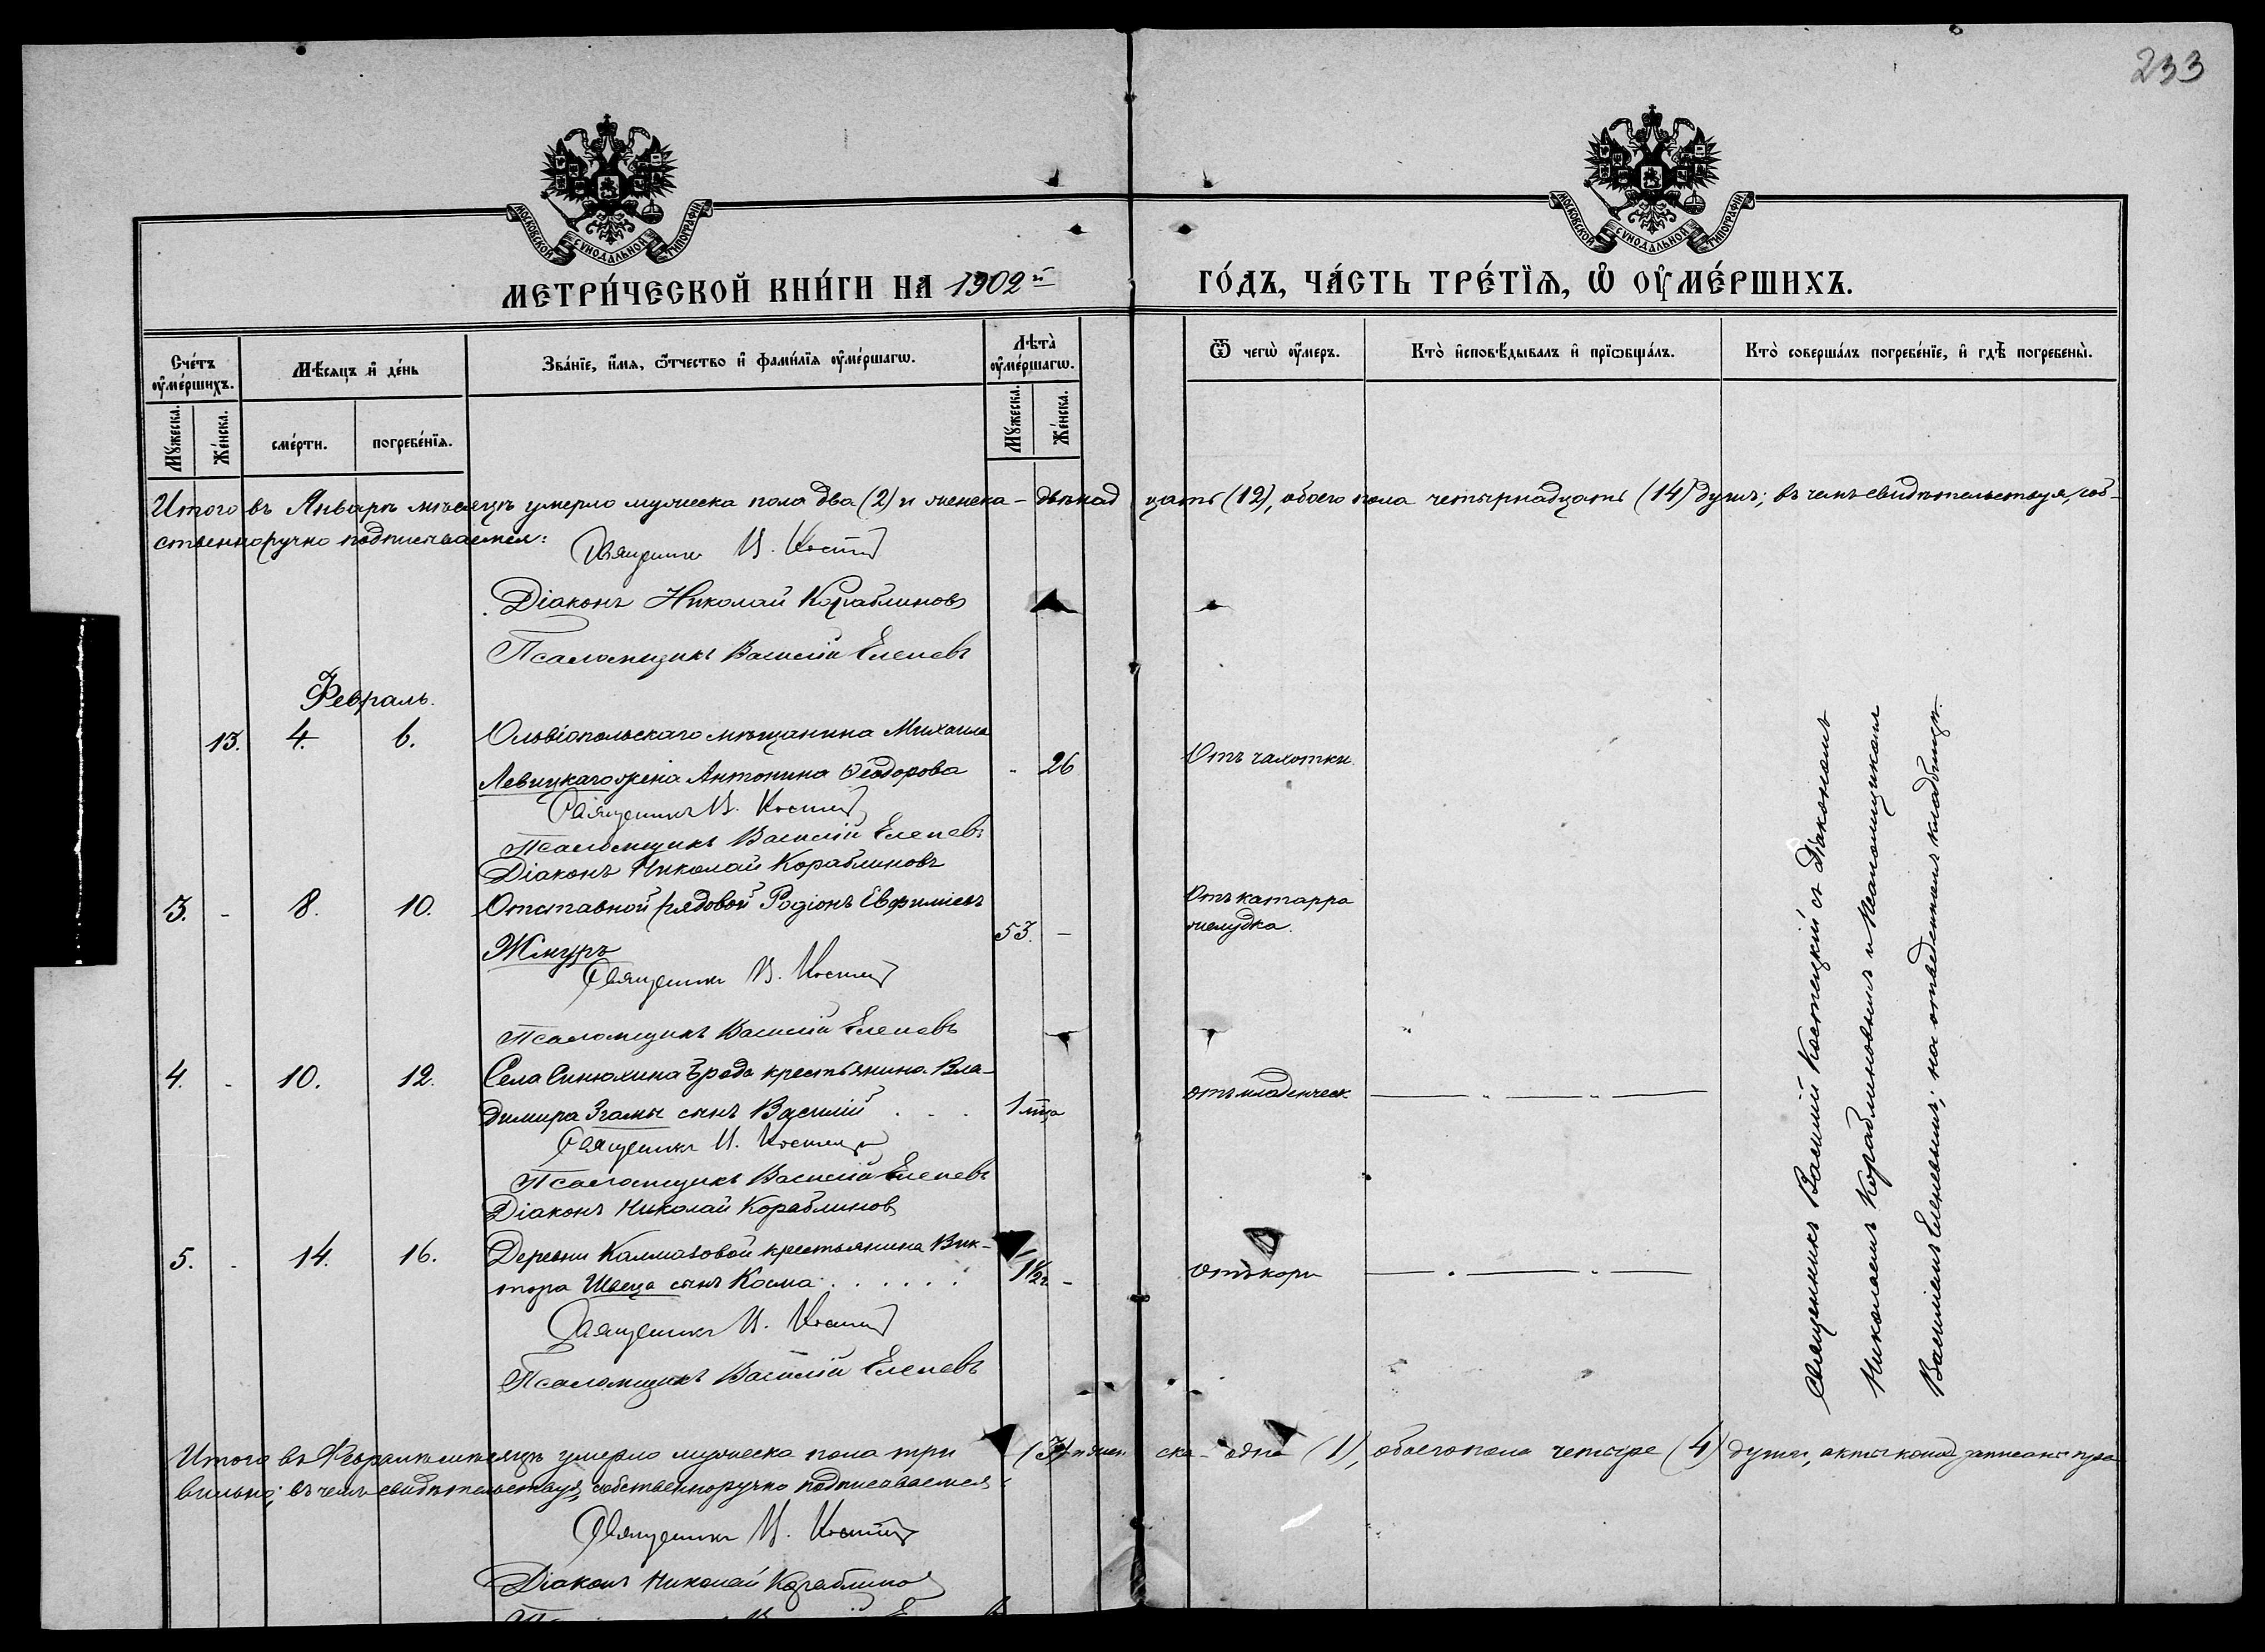 233
МОСКОВСКОЙ СѴНОДАЛЬНОЙ ТИПОГРАФІИ
МОСКОВСКОЙ СѴНОДАЛЬНОЙ ТИПОГРАФІИ
МЕТРИ́ЧЕСКОЙ КНИ́ГИ НА 1902й ГО́ДЪ, ЧА́СТЬ ТРЕ́ТІѦ, Ѡ҆ ОУ҆МЕ́РШИХЪ.
Сче́тъ оу҆ме́ршихъ.
Мѣ́сяцъ и҆ де́нь
Зва́нїе, и҆́мя, ѻ҆́тчество и҆ фами́лїя оу҆ме́ршагѡ.
Лѣ́та оу҆ме́ршагѡ.
Ѿ чегѡ̀ оу҆́меръ.
Кто̀ и҆сповѣ́дывалъ и҆ прїѻбща́лъ.
Кто̀ соверша́лъ погребе́нїе, и҆ гдѣ̀ погребены̀.
Мꙋ́жеска.
Же́нска.
сме́рти.
погребе́нїѧ.
Мꙋ́жеска.
Же́нска.
Итого въ Январѣ мѣсяцѣ умерло мужеска пола два (2) и женска – двѣнадцать (12), обоего пола четырнадцать (14) душъ; въ чемъ свидѣтельствуя, соб-
ственноручно подписываемся:
Священникъ В. Костец
Діаконъ Николай Кораблиновъ
Псаломщикъ Василій Еленевъ
Февраль.
13. 4. 6. Ольвіопольскаго мѣщанина Михаила
Левицкаго жена Антонина Ѳеодорова - 26 Отъ чахотки
Священникъ В. Костец
Псаломщикъ Василій Еленевъ
Діаконъ Николай Кораблиновъ
3. - 8. 10. Отставной рядовой Родіонъ Евфиміевъ Отъ катарра
Жмуръ 53. - желудка.
Священникъ В. Костец
Псаломщикъ Василій Еленевъ
4. - 10. 12. Села Синюхина Брода крестьянина Вла-
димира Згамы сынъ Василій . . . 1 мца отъ младенческ. — „ — „ —
Священникъ В. Костец
Псаломщикъ Василій Еленевъ
Діаконъ Николай Кораблинов
5. - 14. 16. Деревни Калмазовой крестьянина Вик-
тора Швеца сынъ Косма . . . . . . 1½ г. - Отъ кори — „ — „ —
Священникъ В. Костец
Псаломщикъ Василій Еленевъ
Священникъ Василій Костецкій съ Діакономъ
Николаемъ Кораблиновымъ и Псаломщикомъ
Василіемъ Еленевымъ; на отведенномъ кладбищѣ.
Итого въ Февралѣ мѣсяцѣ умерло мужеска пола три (3) и женска – одна (1), обоего пола четыре (4) души, акты коихъ записаны пра-
вильно; въ чемъ свидѣтельствуя, собственноручно подписываемся:
Священникъ В. Костец
Діаконъ Николай Кораблинов